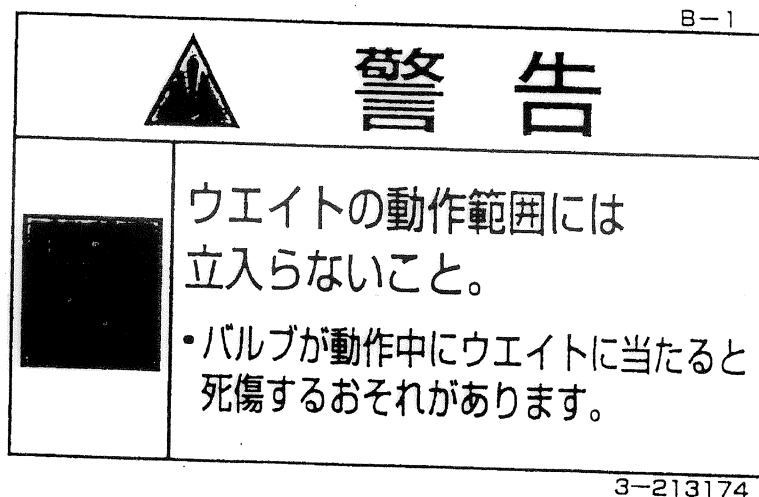 B-1
警告
ウエイトの動作範囲には
立入らないこと。
・バルブが動作中にウエイトに当たると
死傷するおそれがあります。
3-213174